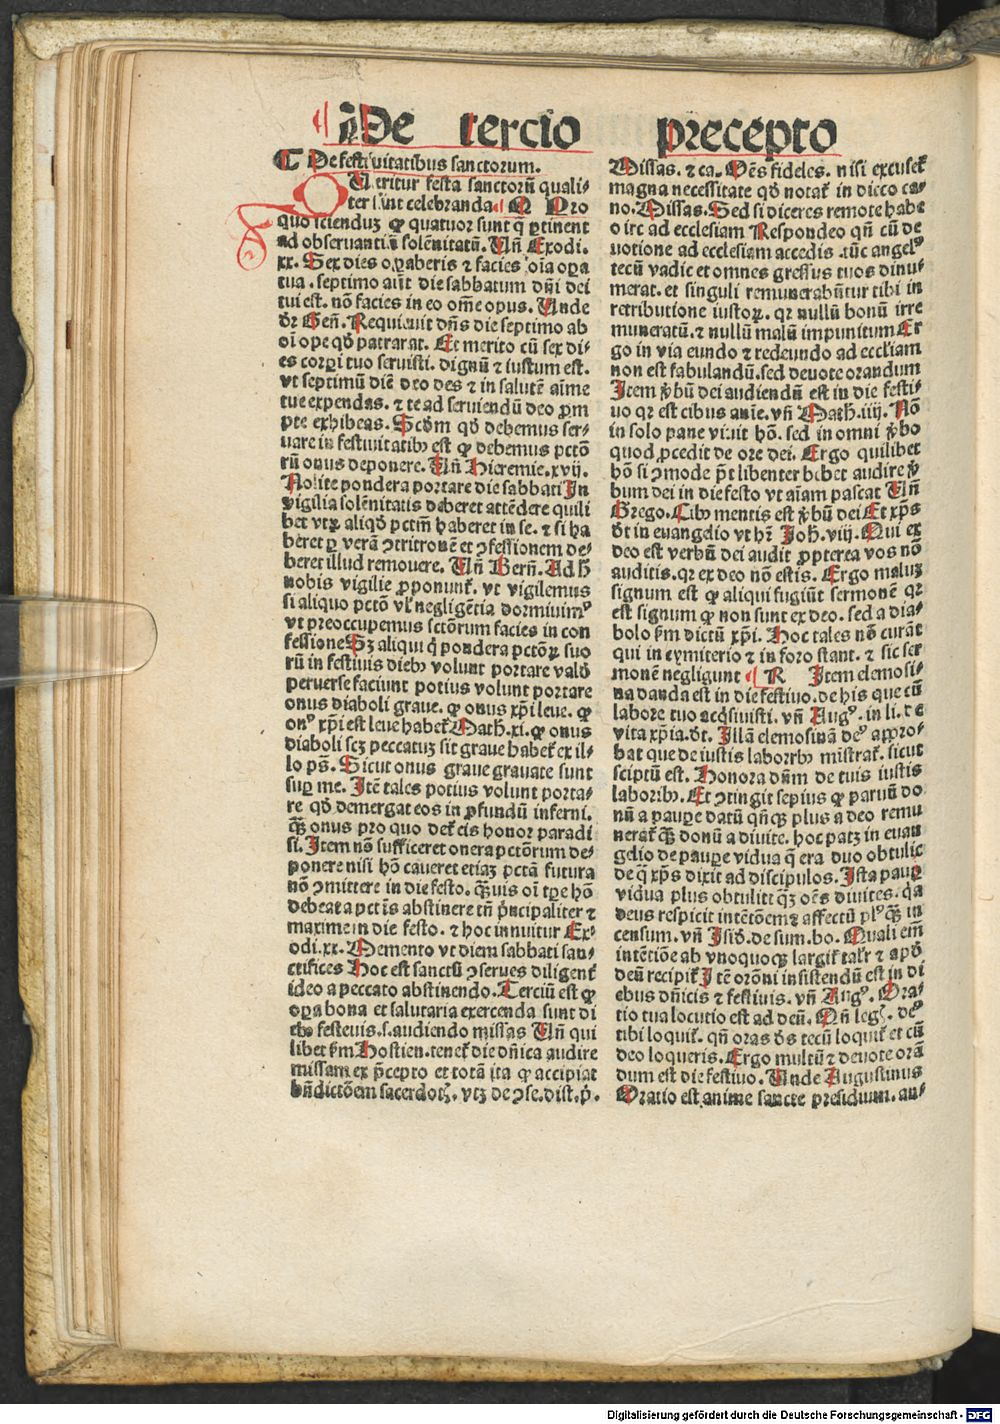 De tercio precepto
¶ De festiuitatibus sanctorum.
Veritur festa sanctorū quali⸗
ter sunt celebranda. Pro
quo scienduʒ ꝙ quatuor sunt q̄ ꝑtinent
ad obseruantiā solēnitatū. Uñ Exodi.
xx. Sex dies oꝑaberis ⁊ facies oīa oꝑa
tua. septimo aūt die sabbatum dñi dei
tui est. nō facies in eo om̄e opus. Unde
dr̄ Geñ. Requieuit dñs die septimo ab
oī ope qd̄ patrarat. Et merito cū sex di⸗
es corpi tuo seruisti. dignū ⁊ iustum est.
vt septimū diē deo des ⁊ in salutē aīme
tue expendas. ⁊ te ad seruiendū deo ꝓm
pte exhibeas. Scd̄m qd̄ debemus ser⸗
uare in festiuitatibꝫ est ꝙ debemus pctō
rū onus deponere. Uñ Hieremie. xvij.
Nolite pondera portare die sabbati In
vigilia solēnitatis deberet attēdere quili
bet vtꝝ aliqd̄ pctm̄ haberet in se. ⁊ si ha
beret ꝑ verā ↄtritionē et ↄfessionem de⸗
beret illud remouere. Uñ Bern̄. Ad ħ
nobis vigilie ꝓponunt̄. vt vigilemus
si aliquo pctō vl̓ negligētia dormiuimꝰ
vt preoccupemus sctōrum facies in con
fessione Sꝫ aliqui q̇ pondera pctōꝝ suo
rū in festiuis diebꝫ volunt portare valď
peruerse faciunt potius volunt portare
onus diaboli graue. ꝙ onus xp̄i leue. ꝙ
onꝰ xp̄i est leue habet̄ Math. xi. ꝙ onus
diaboli scꝫ peccatuꝫ sit graue habet̄ ex il⸗
lo ps̄. Sicut onus graue grauate sunt
suꝑ me. Itē tales potius volunt porta⸗
re qd̄ demergat eos in ꝓfundū inferni.
q̄ꝫ onus pro quo det̄ eis honor paradi
si. Item nō sufficeret onera pctōrum de⸗
ponere nisi hō caueret etiaꝫ pctā futura
nō ↄmittere in die festo. q̄ꝫuis oī tꝑe hō
debeat a pctīs abstinere tn̄ p̄ncipaliter ⁊
maxime in die festo. ⁊ hoc innuitur Ex⸗
odi. xx. Memento vt diem sabbati san⸗
ctifices Hoc est sanctū ↄserues diligent̄
ideo a peccato abstinendo. Terciū est ꝙ
oꝑa bona et salutaria exercenda sunt di
ebꝫ festiuis. s. audiendo missas Uñ qui
libet s̄m Hostien. tenet̄ die dn̄ica audire
missam ex p̄cepto et totā ita ꝙ accipiat
bn̄dictōem sacerdotꝭ. vtꝫ de ↄse. dist. p̄.
Missas. ⁊ ca. Om̄s fideles. nisi excuset̄
magna necessitate qd̄ notat̄ in dicto ca⸗
no. Missas. Sed si diceres remote habe
o ire ad ecclesiam Respondeo qn̄ cū de
uotione ad ecclesiam accedis. tūc angelꝰ
tecū vadit et omnes gressus tuos dinu⸗
merat. et singuli remunerabūtur tibi in
retributione iustoꝝ. qꝛ nullū bonū irre
muneratū. ⁊ nullū malū impunitum Er
go in via eundo ⁊ redeundo ad eccl̓iam
non est fabulandū. sed deuote orandum
Item v̓bū dei audiendū est in die festi⸗
uo qꝛ est cibus anīe. vn̄ Math. iiij. Nō
in solo pane viuit hō. sed in omni v̓bo
quod ꝓcedit de ore dei. Ergo quilibet
hō si ↄmode p̄t libenter debet audire v̓
bum dei in die festo vt aīam pascat Un̄
Grego. Cibꝫ mentis est v̓bū dei Et xp̄s
dt̄ in euangelio vt hr̄ Joh. viij. Qui ex
deo est verbū dei audit ꝓpterea vos nō
auditis. qꝛ ex deo nō estis. Ergo maluꝫ
signum est ꝙ aliqui fugiūt sermonē qꝛ
est signum ꝙ non sunt ex deo. sed a dia⸗
bolo s̄m dictū xp̄i. Hoc tales nō curāt
qui in cymiterio ⁊ in foro stant. ⁊ sic ser
monē negligunt R Item elemosi⸗
na danda est in die festiuo. de his que cū
labore tuo acq̇siuisti. vn̄ Augꝰ. in li. de
vita xp̄ia. dt̄. Illā elemosinā deꝰ appro⸗
bat que de iustis laboribꝫ ministrat̄. sicut
sciptū est. Honora dn̄m de tuis iustis
laboribꝫ. Et ↄtingit sepius ꝙ paruū do
nū a pauꝑe datū qn̄qꝫ plus a deo remu
nerat̄ q̄ꝫ donū a diuite. hoc patꝫ in euan
gelio de pauꝑe vidua q̄ era duo obtulit
de q̄ xp̄s dixit ad discipulos. Ista pauꝑ
vidua plus obtulit q̄ꝫ om̄s diuites. q̇a
deus respicit intētōem ⁊ affectū plꝰ q̄ꝫ in
censum. vn̄ Isid̄. de sum. bo. Quali em̄
intētiōe ab vnoquoqꝫ largit̄ tal̓r ⁊ apd̄
deū recipit̄ Itē orōni insistendū est in di
ebus dn̄icis ⁊ festiuis. vn̄ Augꝰ. Ora⸗
tio tua locutio est ad deū. Qn̄ legꝭ. deꝰ
tibi loquit̄. qn̄ oras ds̄ tecū loquit̄ et cū
deo loqueris. Ergo multū ⁊ deuote orā
dum est die festiuo. Unde Augustinus
Oratio est anime sancte presidium. an⸗
Digitalisierung gefördert durch die Deutsche Forschungsgemeinschaft - DFG